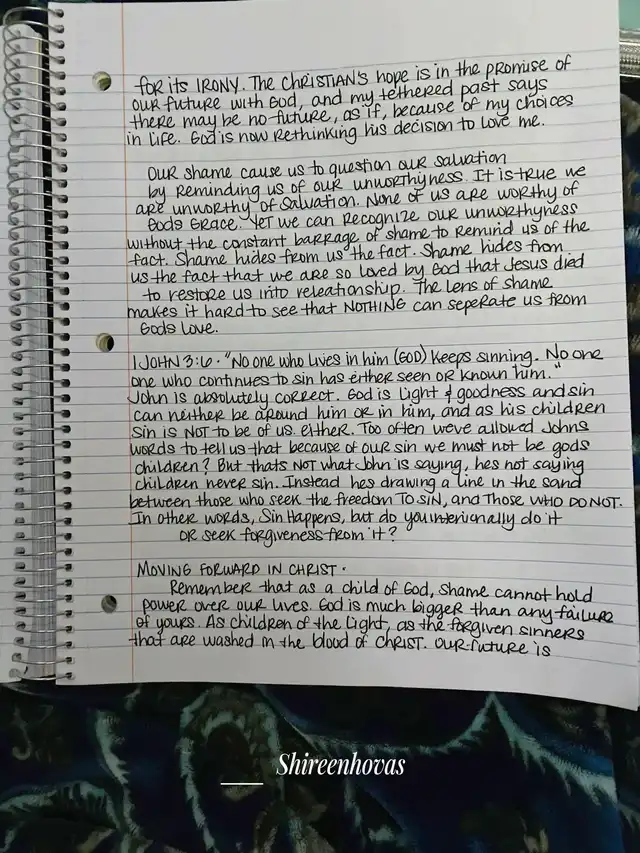 for its IRONY. The CHRISTIAN'S hope is in the promise of
our future with God, and my tethered past says
there may be no future, as if, because of my choices
in life. God is now rethinking his decision to love me.
Our shame cause us to question our salvation
by reminding us of our unworthyness. It is true we
are unworthy of salvation. None of us are worthy of
Gods Grace. Yet we can recognize our unworthyness
without the constant barrage of shame to remind us of the
fact. Shame hides from us the fact. Shame hides from
us the fact that we are so loved by God that Jesus died
to restore us into releationship. The lens of shame
makes it hard to see that NOTHING can seperate us from
Gods Love.
1 JOHN 3:6 · "No one who lives in him (GOD) keeps sinning. No one
one who continues to sin has either seen or known him."
John is absolutely correct. God is Light & goodness and sin
can neither be around him or in him, and as his children
sin is NOT to be of us either. Too often weve allowed Johns
words to tell us that because of our sin we must not be gods
children? But thats NOT what John is saying, hes not saying
children never sin. Instead hes drawing a line in the sand
between those who seek the freedom TO SIN, and Those WHO DO NOT.
In other words, Sin Happens, but do you do it
or seek forgiveness from it?
MOVING FORWARD IN CHRIST.
Remember that as a child of God, shame cannot hold
power over our lives. God is much bigger than any failure
of yours. As children of the Light, as the forgiven sinners
that are washed in the blood of CHRIST. Our future is
Shireenhovas